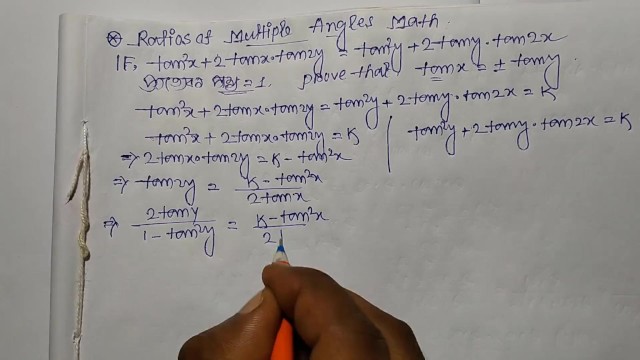 ⊛ Ratios of Multiple Angles Math.
IF, tan²x + 2tanx·tan2y = tan²y + 2tany·tan2x
= 1. prove that tanx = ± tany
tan²x + 2tanx·tan2y = tan²y + 2tany·tan2x = K
tan²x + 2tanx·tan2y = K | tan²y + 2tany·tan2x = K
⇒ 2tanx·tan2y = K - tan²x
⇒ tan2y = (K - tan²x)/(2tanx)
⇒ (2tany)/(1 - tan²y) = (K - tan²x)/2